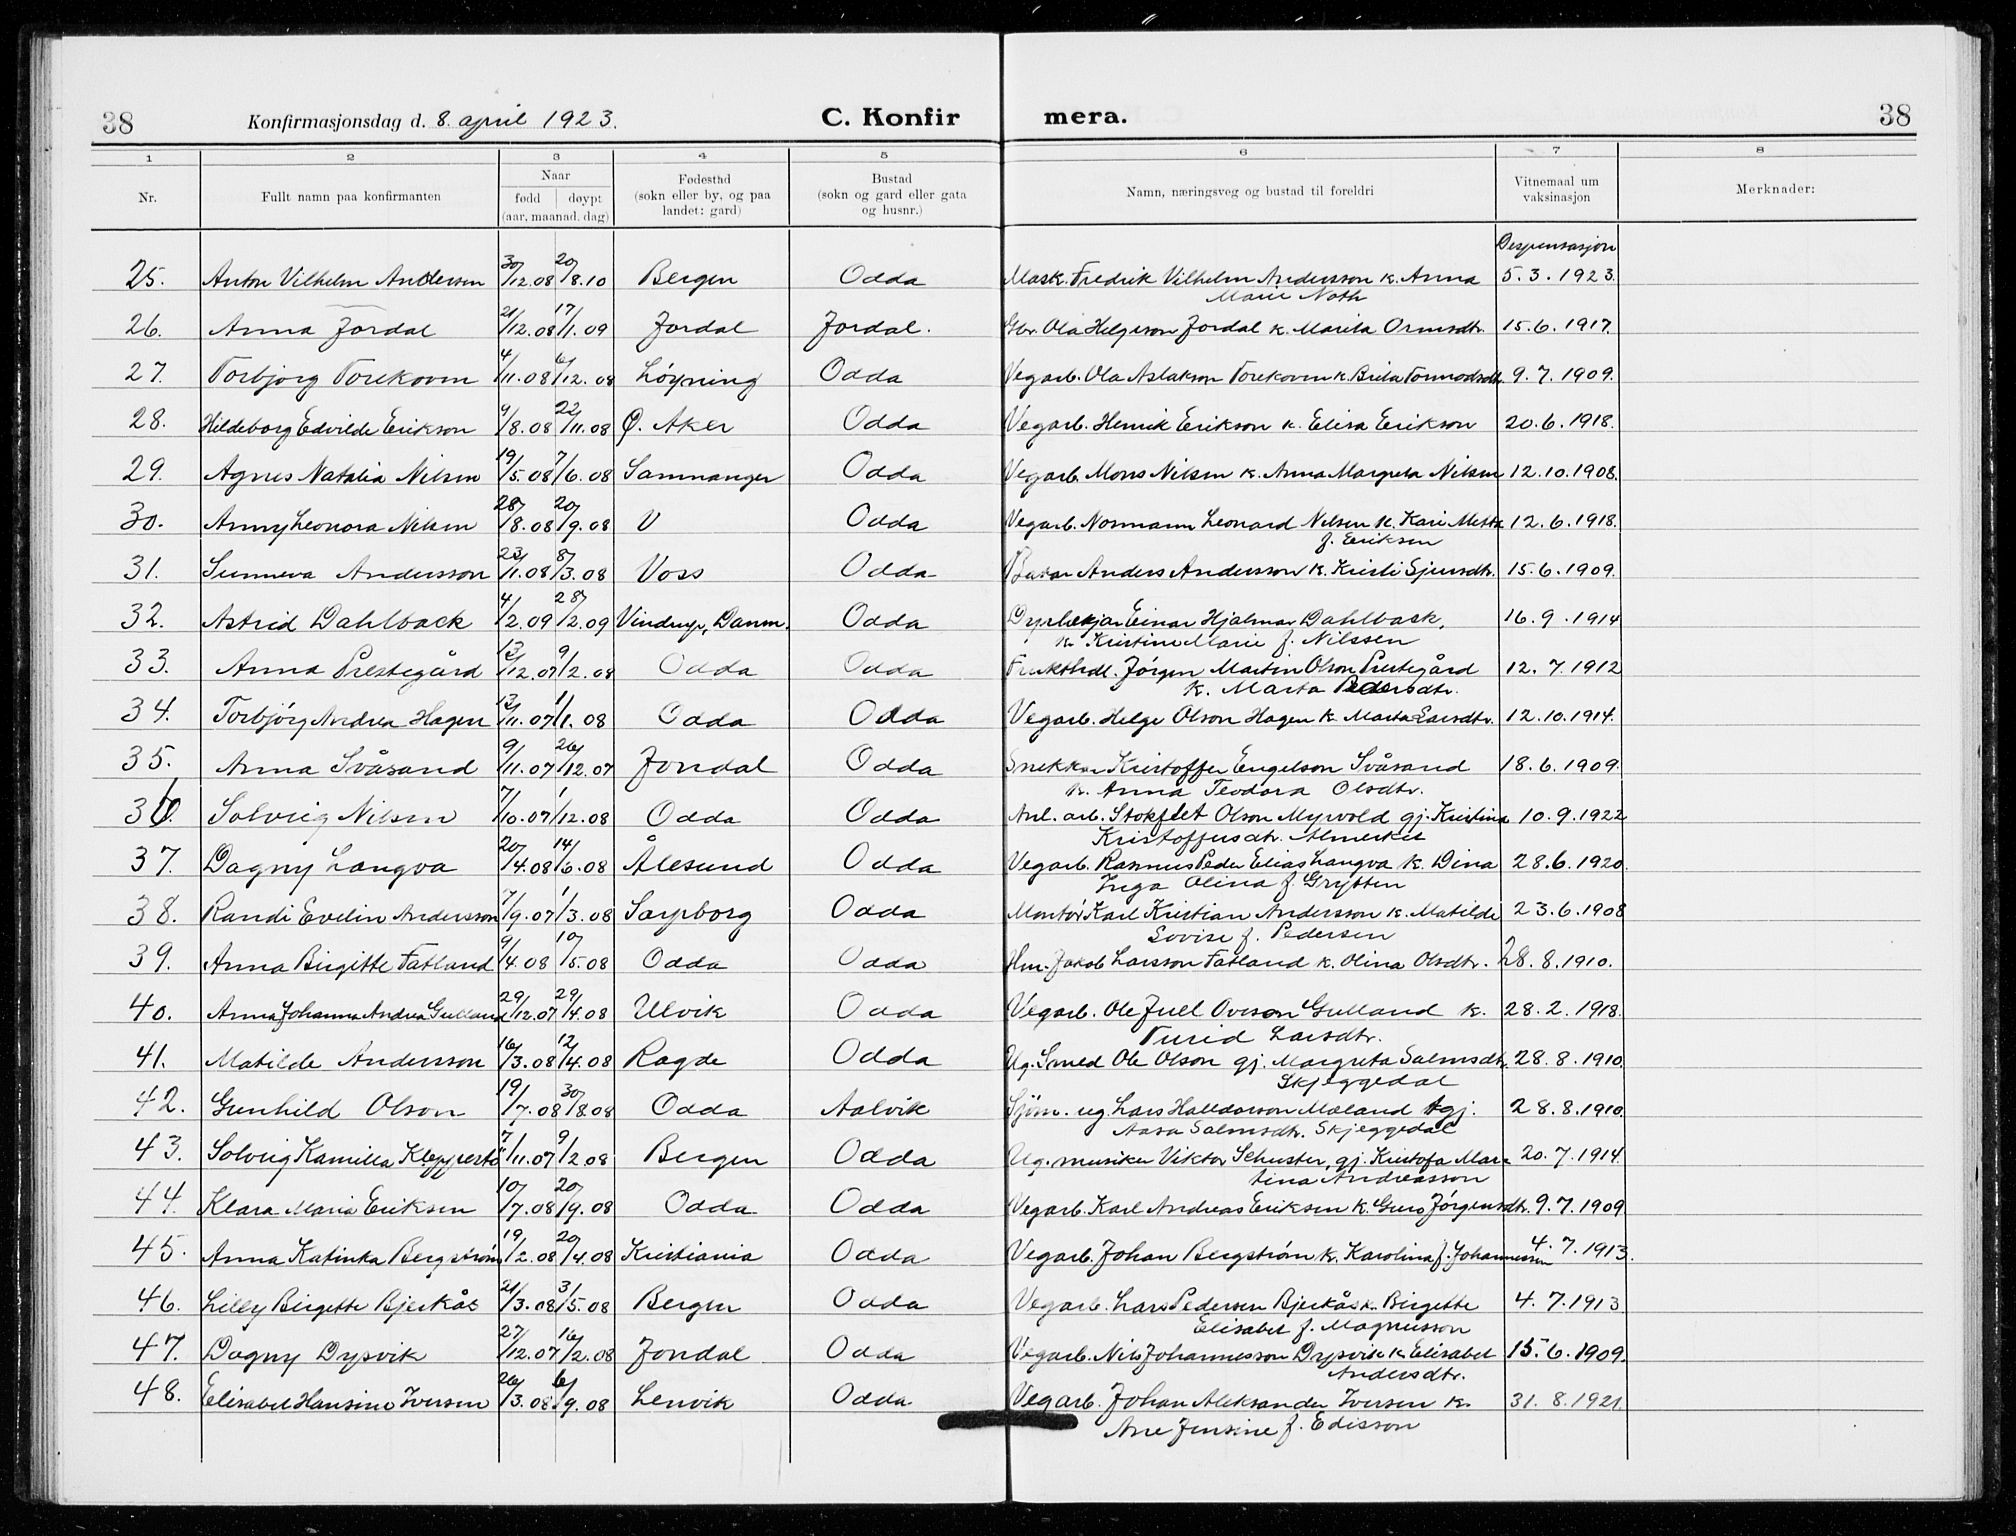 38 Konfirmasjonsdag d. 8. april 1923. C. Konfir mera. 38
1 2 3 4 5 6 7 8
Nr. Fullt namn paa konfirmanten Naar fødd døypt (aar, maanad, dag) Fødestad (sokn eller by, og paa landet: gard) Bustad (sokn og gard eller gata og husnr.) Namn, næringsveg og bustad til foreldri Vitnemaal um vaksinasjon Merknader:
Dispensasjon
25. Anton Vilhelm Andersen 30/12.08 20/8.10 Bergen Odda Mask. Fredrik Vilhelm Andersson k. Anna 5.3.1923.
Marie Noth
26. Anna Jordal 21/12.08 17/1.09 Jordal Jordal. Gbr. Ola Helgeson Jordal k. Marita Ormsdtr. 15.6.1917.
27. Torbjorg Torekoven 4/11.08 6/12.08 Löyning Odda Vegarb. Ola Aslakson Torekoven k. Brita Tormodsdtr. 9.7.1909.
28. Hildeborg Edvilde Erikson 9/8.08 22/11.08 Ö. Aker Odda Vegarb. Henrik Erikson k. Elisa Erikson 20.6.1918.
29. Agnes Natalia Nilsen 19/5.08 7/6.08 Samnanger Odda Vegarb. Mons Nilsen k. Anna Margreta Nilsen 12.10.1908.
30. Anny Leonora Nilsen 28/8.08 20/9.08 V Odda Vegarb. Normann Leonard Nilsen k. Kari Mette 12.6.1918.
f. Eriksen
31. Sunneva Andersson 23/11.08 8/3.08 Voss Odda Bakar Anders Andersson k. Kristi Sjursdtr. 15.6.1909.
32. Astrid Dahlback 4/2.09 28/2.09 Vindrup, Danm. Odda Dyrlækjar Einar Hjalmar Dahlback, 16.9.1914
k. Kristine Marie f. Nilssen
33. Anna Prestegård 13/12.07 9/2.08 Odda Odda Frukthdl. Jörgen Martin Olson Prestegård 12.7.1912
k. Marta Pedersdtr.
34. Torbjörg Andrea Hagen 13/11.07 1/1.08 Odda Odda Vegarb. Helge Olson Hagen k. Marta Larsdtr. 12.10.1914.
35. Anna Svåsand 9/11.07 26/12.07 Jondal Odda Snekkar Kristoffer Engelson Svåsand 18.6.1909.
k. Anna Teodora Olsdtr.
36. Solveig Nilsen 7/10.07 1/12.08 Odda Odda Anl. arb. Stokflet Olson Myrvold gj. Kristina 10.9.1922
Kristoffersdtr. Almerket
37. Dagny Langva 20/4.08 14/6.08 Ålesund Odda Vegarb. Rasmus Peder Elias Langva k. Dina 28.6.1920.
Inga Olina f. Grytten
38. Randi Evelin Andersson 7/9.07 1/3.08 Sarpborg Odda Montör Karl Kristian Andersson k. Matilde 23.6.1908
Lovise f. Pedersen
39. Anna Birgitte Fatland 9/4.08 10/5.08 Odda Odda Hm. Jakob Larsson Fatland k. Olina Olsdtr. 28.8.1910.
40. Anna Johanna Andrea Gulland 29/12.07 29/4.08 Ulvik Odda Vegarb. Ole Juel Overson Gulland k. 28.2.1918.
Turid Larsdtr.
41. Matilde Andersson 16/3.08 12/4.08 Ragde Odda Ug. Smed Ole Olson gj. Margreta Salmsdtr. 28.8.1910.
Skjeggedal
42. Gunhild Olson 19/7.08 30/8.08 Odda Aalvik Sjöm. ug. Lars Halldorson Mæland gj. 28.8.1910.
Aasa Salmsdtr. Skjeggedal
43. Solveig Kamilla Klepperstö 7/11.07 9/2.08 Bergen Odda Ug. musiker Viktor Schuster, gj. Kristofa Mar= 20.7.1914.
tina Andreasson
44. Klara Maria Eriksen 10/7.08 20/9.08 Odda Odda Vegarb. Karl Andreas Eriksen k. Guro Jörgensdtr. 9.7.1909.
45. Anna Katinka Bergström 19/2.08 20/4.08 Kristiania Odda Vegarb. Johan Bergström k. Karolina f. Johannessen 4.7.1913.
46. Lilly Birgette Bjerkås 21/3.08 31/5.08 Bergen Odda Vegarb. Lars Pedersen Bjerkås k. Birgette 4.7.1913.
Elisabet f. Magnusson
47. Dagny Drysvik 27/12.07 16/2.08 Jondal Odda Vegarb. Nils Johannesson Drysvik k. Elisabet 15.6.1909.
Andersdtr.
48. Elisabet Hansine Iversen 26/3.08 6/9.08 Lenvik Odda Vegarb. Johan Aleksander Iversen k. 31.8.1921.
Ane Jensine f. Edisson